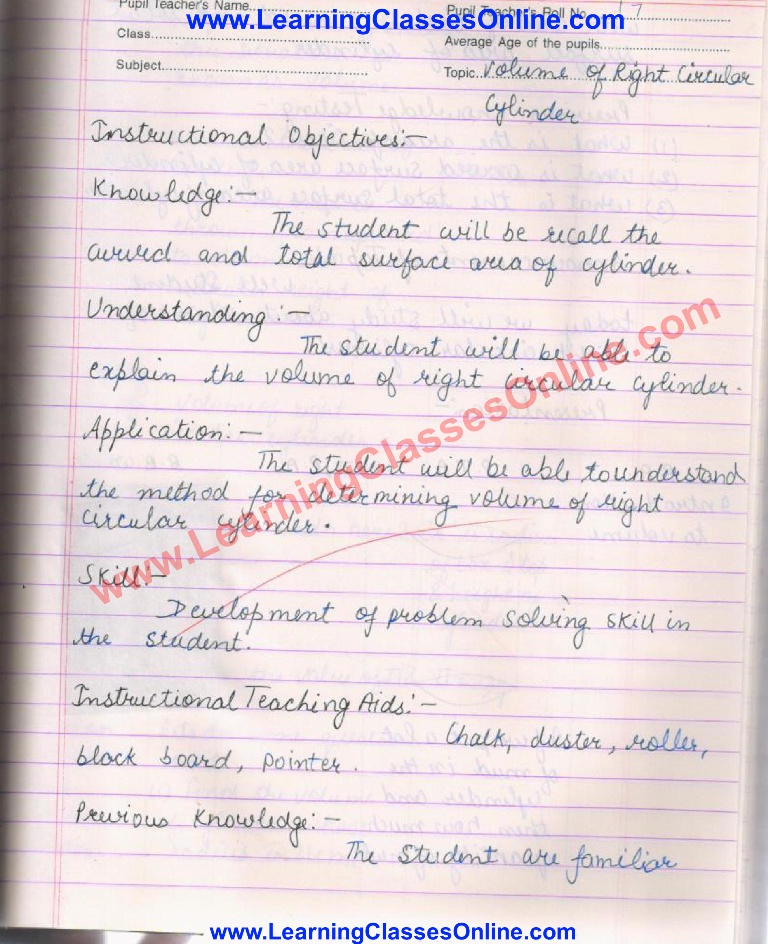 www.LearningClassesOnline.com
Pupil Teacher's Name
Pupil Teacher's Roll No. 17
Class
Average Age of the pupils
Subject
Topic Volume of Right Circular
Cylinder
Instructional Objectives:-
Knowledge:-
The student will be recall the
curved and total surface area of cylinder.
Understanding:-
The student will be able to
explain the volume of right circular cylinder.
Application:-
The student will be able to understand
the method for determining volume of right
circular cylinder.
Skill:-
Development of problem solving skill in
the student.
Instructional Teaching Aids:-
Chalk, duster, roller,
black board, pointer.
Previous Knowledge:-
The student are familiar
www.LearningClassesOnline.com
www.LearningClassesOnline.com